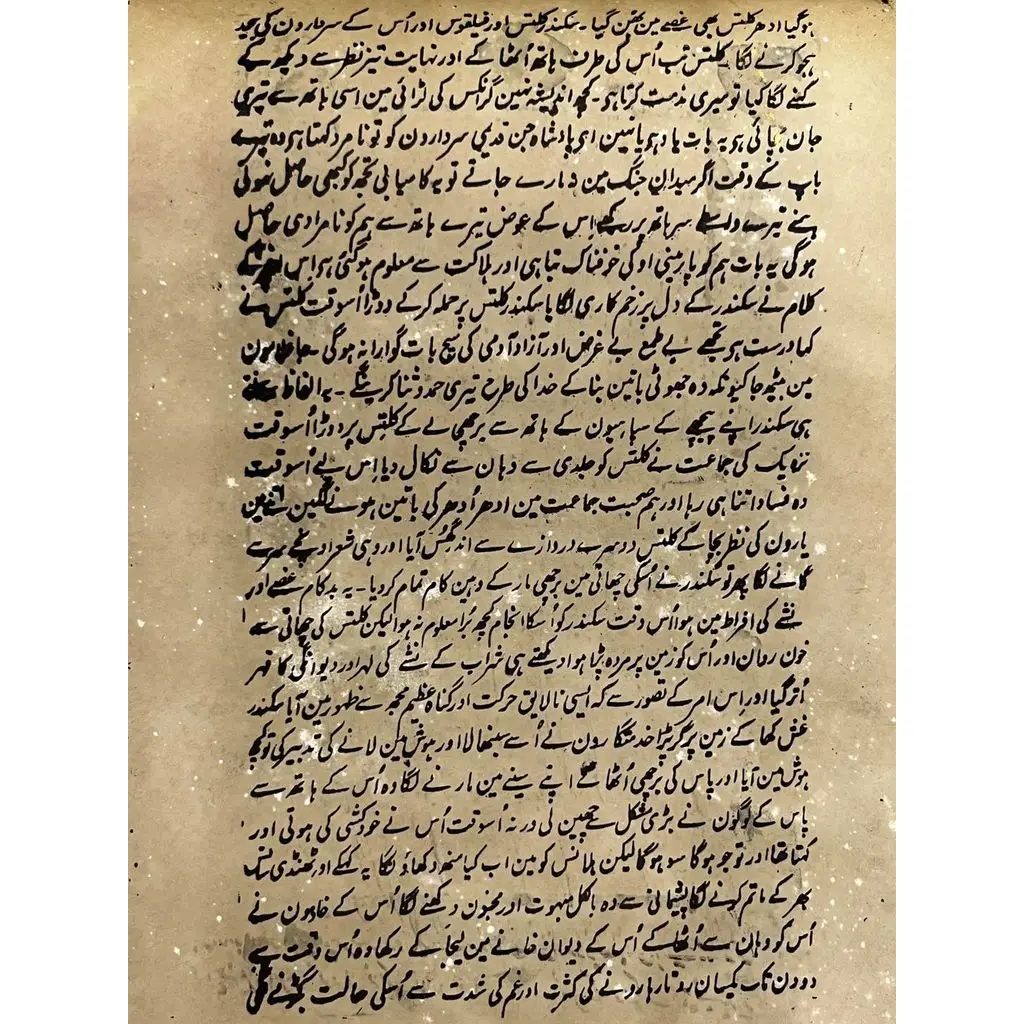 ہوگیا ادھر کلتس بھی غصے مین بھتن گیا ۔ سکندر کلتس اور فیلقوس اور اُس کے سردارون کی بیحد
ہجو کرنے لگا کلتس تب اُس کی طرف ہاتھ اُٹھا کے اور نہایت تیز نظر سے دیکھ کے
کہنے لگا کیا تو میری مذمت کرتا ہو ۔ کچھ اندیشہ نہین گرانکس کی لڑائی مین اسی ہاتھ سے تیری
جان بچائی ہو یہ بات یاد ہو یا نہین ای پادشاہ جن قدیمی سردارون کو تو نامرد کہتا ہو وہ تیرے
باپ کے وقت اگر میدان جنگ مین نہ مارے جاتے تو یہ کامیابی تجھ کو کبھی حاصل نہوتی
ہمنے تیرے واسطے سر ہاتھ پر رکھے اِس کے عوض تیرے ہاتھ سے ہم کو نامرادی حاصل
ہوگی یہ بات ہم کو پارمینی او کی خوفناک تباہی اور ہلاکت سے معلوم ہوگئی ہو اِس
کلام نے سکندر کے دل پر زخم کاری لگایا سکندر کلتس پر حملہ کرکے دوڑا اُسوقت کلتس نے
کہا درست ہو تجھے بے طمع بے غرض اور آزاد آدمی کی سچ بات گوارا نہ ہوگی ۔ جا غلامون
مین بیٹھ جا کیونکہ وہ جھوٹی باتین بنا کے خدا کی طرح تیری حمد و ثنا کرینگے ۔ یہ الفاظ سنتے
ہی سکندر اپنے پیچھے کے سپاہیون کے ہاتھ سے برچھی لے کے کلتس پر دوڑا اُسوقت
نزدیک کی جماعت نے کلتس کو جلدی سے وہان سے نکال دیا اِس لیے اُسوقت
وہ فساد اتنا ہی رہا اور ہم صحبت جماعت مین ادھر اُدھر کی باتین ہونے لگین اتنے مین
یارون کی نظر بچا کے کلتس دوسرے دروازے سے اندر گھس آیا اور وہی شعر اونچے سر سے
گانے لگا پھر تو سکندر نے اُسکی چھاتی مین برچھی مار کے وہین کام تمام کر دیا ۔ یہ بد کام غصے اور
نشے کی افراط مین ہوا اُس وقت سکندر کو اُسکا انجام کچھ بُرا معلوم نہ ہوا لیکن کلتس کی چھاتی سے
خون روان اور اُس کو زمین پر مردہ پڑا ہوا دیکھتے ہی شراب کے نشے کی لہر اور دیوانگی کا قہر
اُتر گیا اور اِس امر کے تصور سے کہ ایسی نالایق حرکت اور گناہ عظیم مجھ سے ظہور مین آیا سکندر
غش کھا کے زمین پر گر پڑا خدمتگارون نے اُسے سنبھالا اور ہوش مین لانے کی تدبیر کی تو کچھ
ہوش مین آیا اور پاس کی برچھی اُٹھا کے اپنے سینے مین مارنے لگا وہ اُس کے ہاتھ سے
پاس کے لوگون نے بڑی مشکل سے چھین لی ورنہ اُسوقت اُس نے خودکشی کی ہوتی اور
کہتا تھا اور تو جو ہوگا سو ہوگا لیکن ہلانس کو مین اب کیا منھ دکھاؤ لگا یہ کہکے اور ٹھنڈی سانس
بھر کے ماتم کرنے لگا پشیمانی سے وہ بالکل مبہوت اور مجنون دکھنے لگا اُس کے خادمون نے
اُس کو وہان سے اُٹھا کے اُس کے دیوان خانے مین لیجا کے رکھا وہ اُس وقت سے
دو دن تک یکسان روتا رہا رونے کی کثرت اور غم کی شدت سے اُسکی حالت بگڑنے لگی